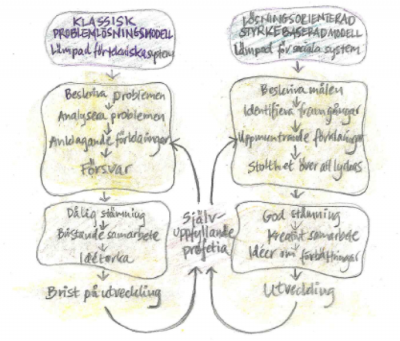 KLASSISK
PROBLEMLÖSNINGSMODELL
Lämpad för tekniska system
Beskriva problemen
Analysera problemen
Anklagande förklaringar
Försvar
Dålig stämning
Bristande samarbete
Idétorka
Brist på utveckling
Själv-
uppfyllande
profetia
LÖSNINGSORIENTERAD
STYRKEBASERAD MODELL
Lämpad för sociala system
Beskriva målen
Identifiera framgångar
Uppmuntrande förklaringar
Stolthet över att lyckas
God stämning
Kreativt samarbete
Idéer om förbättringar
Utveckling